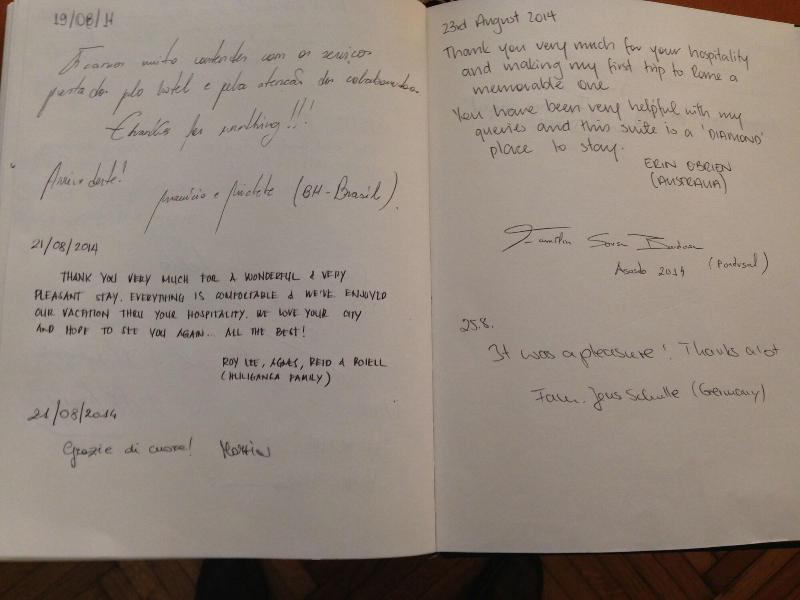 19/08/14
Ficamos muito contentes com os serviços
prestados plo hotel e pela atencão dos colaboradores
for
!!!
Arrivederte!
e (BH-Brasil).
21/08/2014
THANK YOU VERY MUCH FOR A WONDERFUL & VERY
PLEASANT STAY. EVERYTHING IS COMFORTABLE & WE'VE ENJOYED
OUR VACATION THRU YOUR HOSPITALITY. WE LOVE YOUR CITY
AND HOPE TO SEE YOU AGAIN... ALL THE BEST!
ROY LEE, AGNES, REID &
(HULIGANGA FAMILY)
21/08/2014
Grazie di cuore!
23rd August 2014
Thank you very much for your hospitality
and making my first trip to Rome a
memorable one.
You have been very helpful with my
queries and this suite is a 'DIAMOND'
place to stay.
ERIN O'BRIEN
(AUSTRALIA)
Família Sousa
Agosto 2014 (Portugal)
25.8.
It was a pleasure! Thanks a lot
Fam. Jens Schulle (Germany)